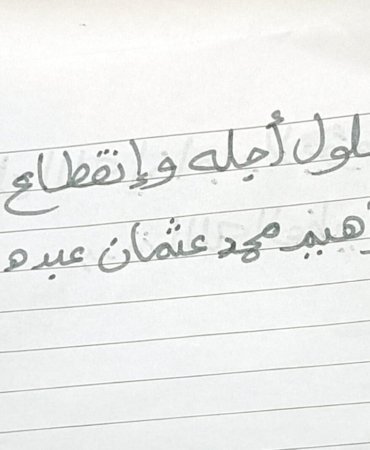 لول أجله وإنقطاع
هيم محمد عثمان عبده